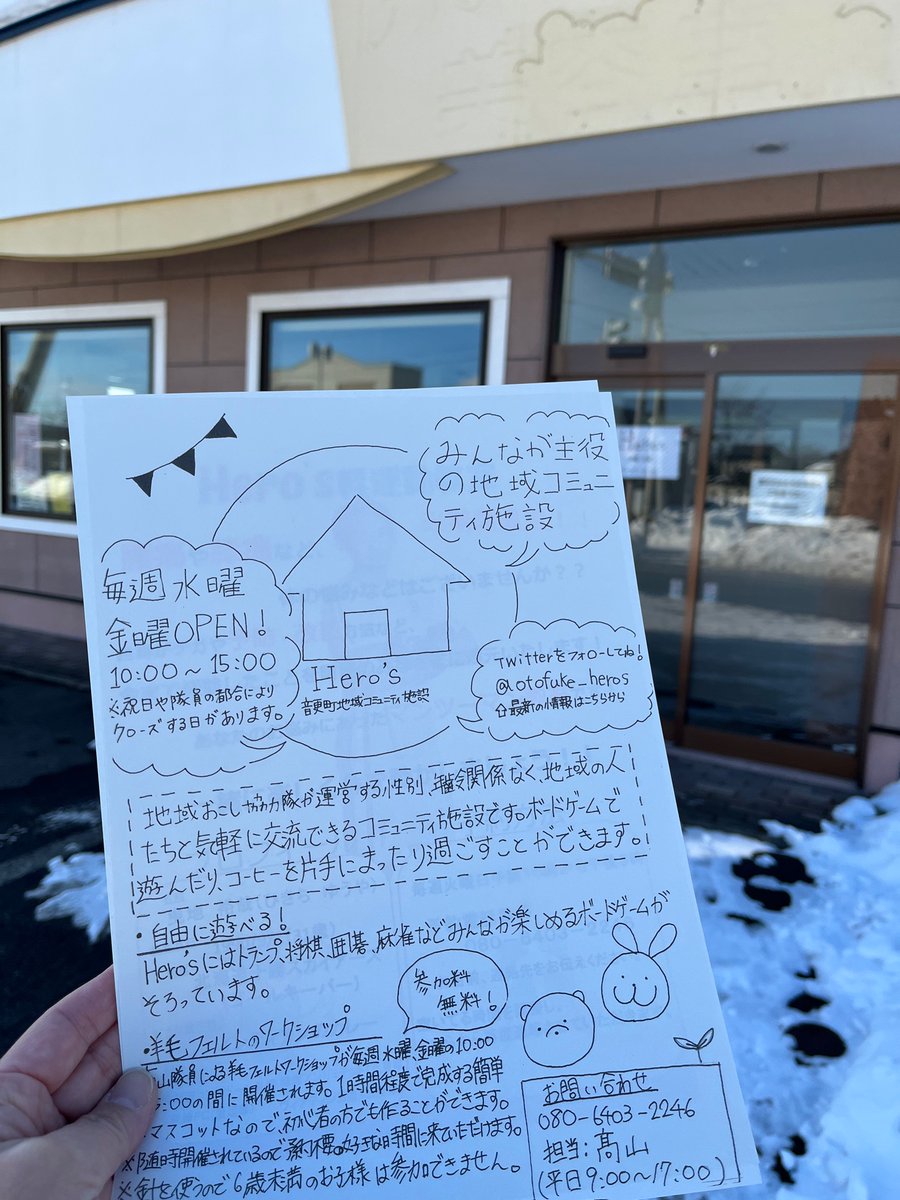 みんなが主役
の地域コミュニ
ティ施設
毎週水曜
金曜OPEN!
10:00～15:00
※祝日や隊員の都合により
クローズする日があります。
Hero's
音更町地域コミュニティ施設
Twitterをフォローしてね!
@otofuke_heros
最新の情報はこちらから
地域おこし協力隊が運営する性別、年齢関係なく、地域の人
たちと気軽に交流できるコミュニティ施設です。ボードゲームで
遊んだり、コーヒーを片手にまったり過ごすことができます。
・自由に遊べる!
Hero'sにはトランプ、将棋、囲碁、麻雀などみんなが楽しめるボードゲームが
そろっています。
参加料
無料!
・羊毛フェルトのワークショップ
山隊員による羊毛フェルトワークショップが毎週水曜、金曜の10:00
:00の間に開催されます。1時間程度で完成する簡単
マスコットなので、初心者の方でも作ることができます。
※随時開催されているので予約不要。お好きな時間に来ていただけます。
※針を使うので6歳未満のお子様は参加できません。
お問い合わせ
080-6403-2246
担当:髙山
(平日9:00～17:00)